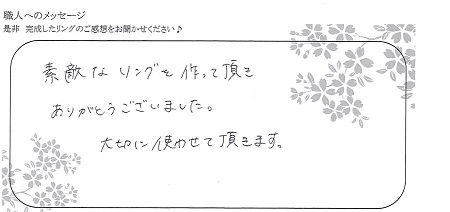 職人へのメッセージ
是非 完成したリングのご感想をお聞かせください♪
素敵なリングを作って頂き
ありがとうございました。
大切に使わせて頂きます。